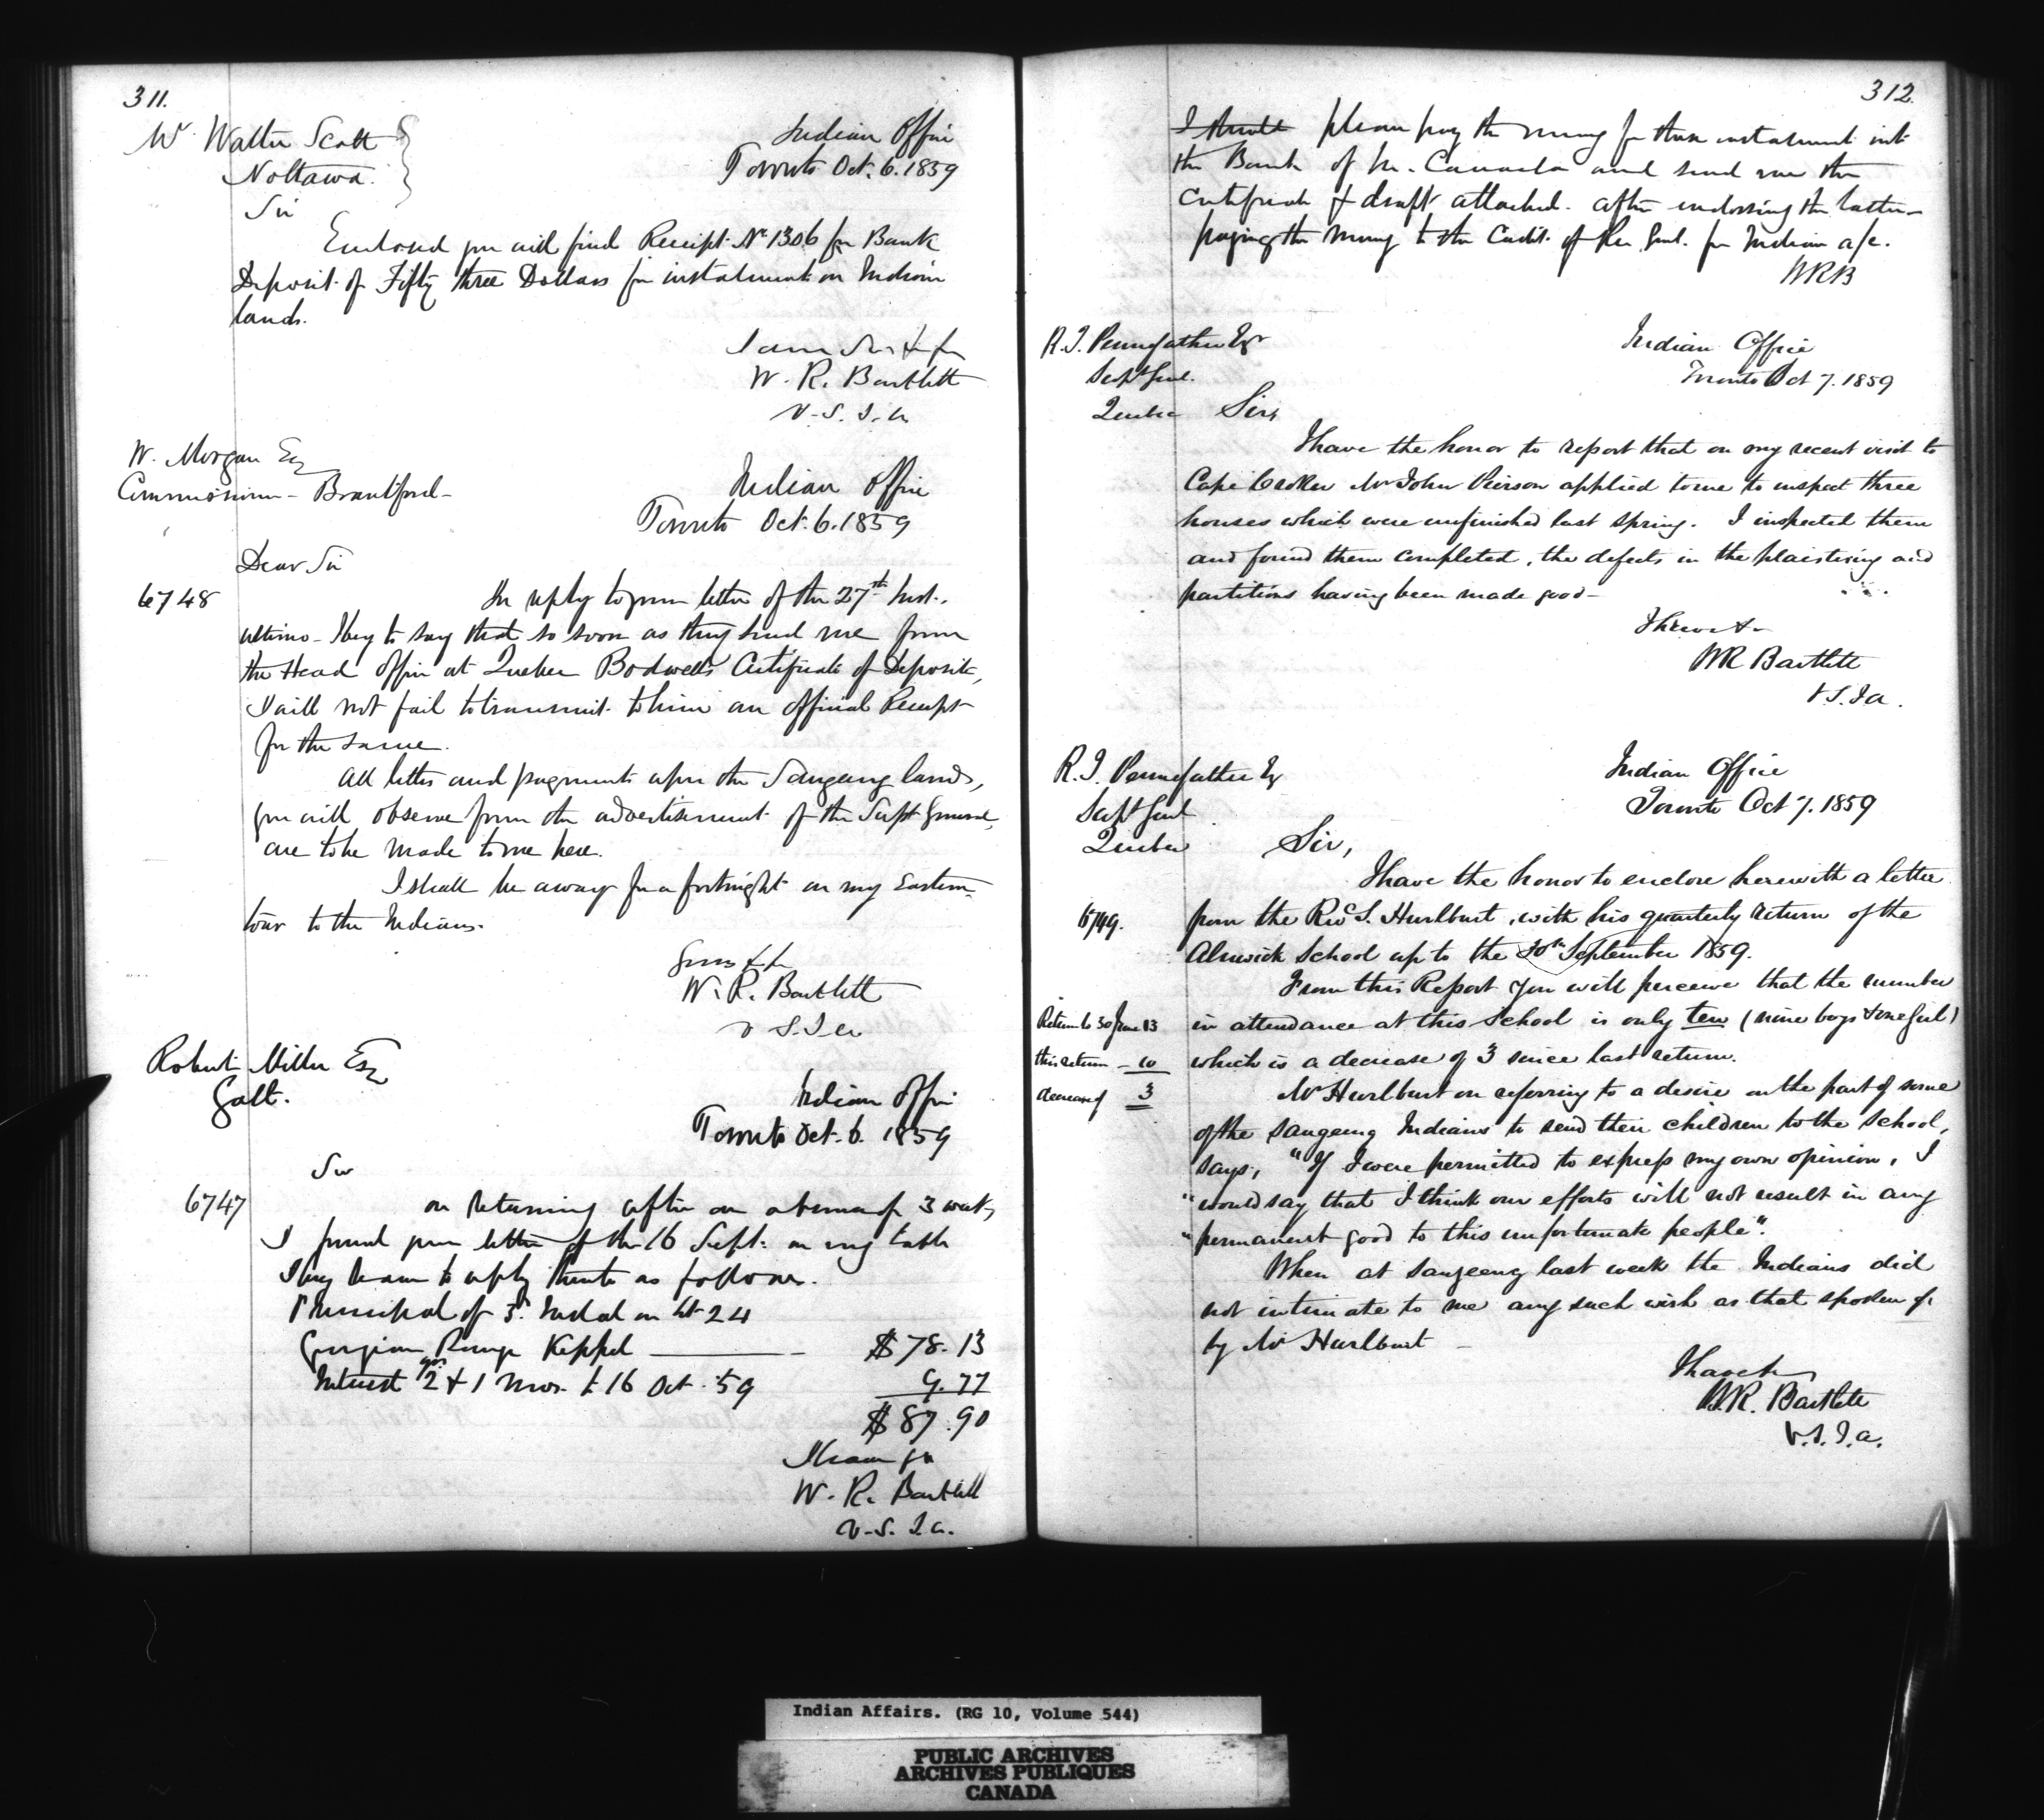 311.
Mr Walter Scott
Nottawa.
Indian Office
Toronto Oct. 6. 1859
Sir
Enclosed you will find Receipt No 1306 for Bank
Deposit of Fifty three Dollars for instalment on Indian
lands.
I am Sir &c &c
W. R. Bartlett
V. S. I. A
W. Morgan Esq
Commissioner - Brantford -
Indian Office
Toronto Oct. 6. 1859
Dear Sir
6748
In reply to your letter of the 27th Inst.
ultimo - I beg to say that so soon as they send me from
the Head Office at Quebec Bodwells Certificate of Deposit,
I will not fail to transmit to him an official Receipt
for the same.
All letters and payments upon the Saugeeng lands,
you will observe from the advertisement of the Supt General,
are to be made to me here.
I shall be away for a fortnight on my Eastern
tour to the Indians.
Yours &c
W. R. Bartlett
V S. I A
Robert Miller Esq
Galt.
Indian Office
Toronto Oct. 6. 1859
Sir
6747
on returning after an absence of 3 weeks
I found your letter of the 16 Sept. on my table
I beg leave to reply thereto as follows.
Principal of 3d Instal on lot 24
Georgian Range Keppel — $78.13
Interest 2 yrs & 1 mos. to 16 Oct. 59 9.77
$87.90
I have &c
W. R. Bartlett
V. S. I. A.
312.
I should please pay the money for these instalment into
the Bank of U. Canada and send me the
Certificate & draft attached. after endorsing the latter -
paying the money to the Credit of Rec Genl. for Indian a/c.
WRB
R. T. Pennefather Esqr
Supt Genl.
Quebec
Indian Office
Toronto Oct 7. 1859
Sir,
I have the honor to report that on my recent visit to
Cape Croker Mr John Pierson applied to me to inspect three
houses which were unfinished last spring. I inspected them
and found them completed, the defects in the plaistering and
partitions having been made good -
I have &c
WR Bartlett
V. S. I A.
R. T. Pennefather Esq
Supt Genl
Quebec
Indian Office
Toronto Oct 7. 1859
Sir,
I have the honor to enclose herewith a letter
6749.
from the Revd S. Hurlburt, with his quarterly return of the
Alnwick School up to the 30th September 1859.
From this Report you will perceive that the number
Return to 30 June 13
in attendance at this School is only ten (nine boys & one girl)
this return - 10
which is a decrease of 3 since last return.
decrease of 3
Mr Hurlburt on referring to a desire on the part of some
of the Saugeeng Indians to send their children to the School,
says, "If I were permitted to express my own opinion, I
"would say that I think our efforts will not result in any
"permanent good to this unfortunate people".
When at Saugeeng last week the Indians did
not intimate to me any such wish as that spoken of
by Mr Hurlburt -
I have &c
W. R. Bartlett
V. S. I. A.
Indian Affairs. (RG 10, Volume 544)
PUBLIC ARCHIVES
ARCHIVES PUBLIQUES
CANADA